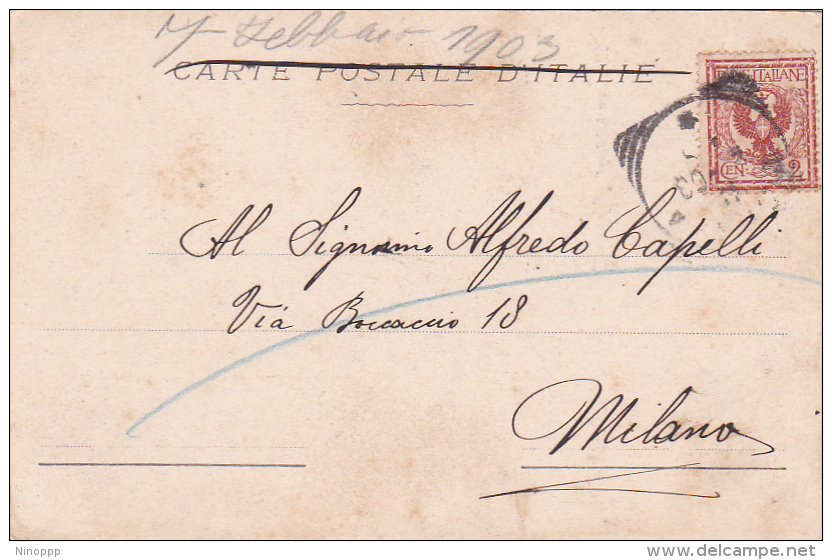 Febbraio 1903
CARTE POSTALE D'ITALIE
POSTE ITALIANE
CEN 2
03
Al Signorino Alfredo Capelli
Via Boccaccio 18
Milano
Ninoppp
delcampe.net